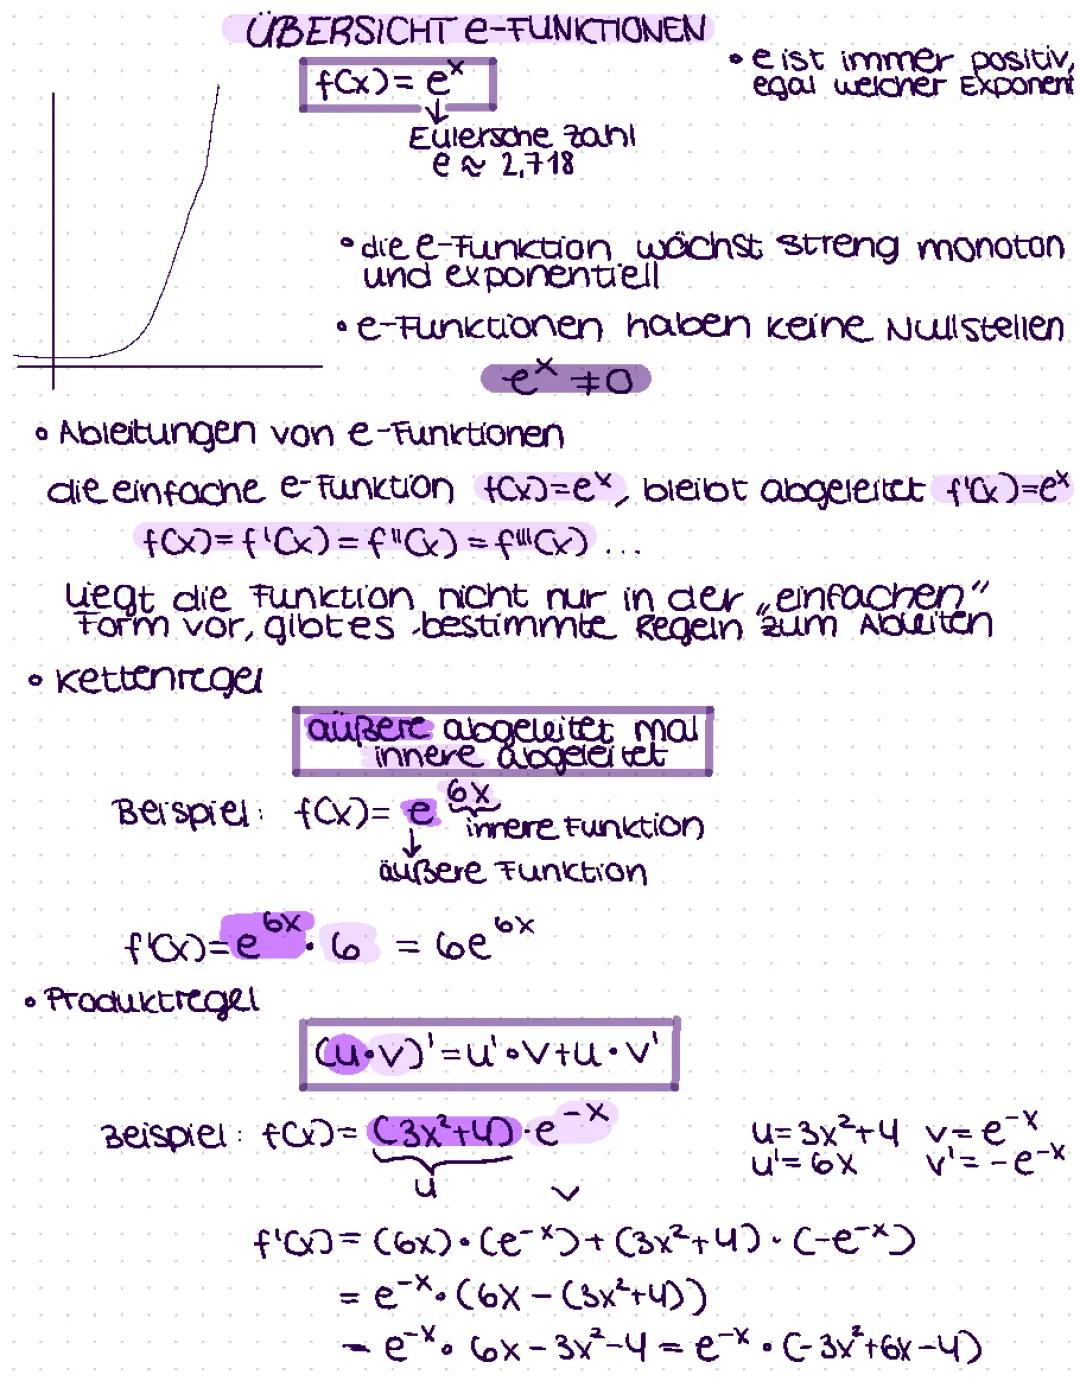 ÜBERSICHT e-FUNKTIONEN
f(x) = eˣ
• e ist immer positiv,
egal welcher Exponent
Eulersche Zahl
e ≈ 2,718
• die e-Funktion wächst streng monoton
und exponentiell
• e-Funktionen haben keine Nullstellen
eˣ ≠ 0
• Ableitungen von e-Funktionen
die einfache e-Funktion f(x)=eˣ, bleibt abgeleitet f'(x)=eˣ
f(x) = f'(x) = f''(x) = f'''(x) ...
liegt die Funktion nicht nur in der „einfachen“
Form vor, gibt es bestimmte Regeln zum Ableiten
• Kettenregel
äußere abgeleitet mal
innere abgeleitet
Beispiel: f(x) = e⁶ˣ
innere Funktion
äußere Funktion
f'(x) = e⁶ˣ · 6 = 6e⁶ˣ
• Produktregel
(u·v)' = u'·v+u·v'
Beispiel: f(x) = (3x²+4)·e⁻ˣ
u=3x²+4 v=e⁻ˣ
u'=6x v'=-e⁻ˣ
u v
f'(x) = (6x)·(e⁻ˣ)+(3x²+4)·(-e⁻ˣ)
= e⁻ˣ·(6x-(3x²+4))
= e⁻ˣ·6x-3x²-4 = e⁻ˣ·(-3x²+6x-4)